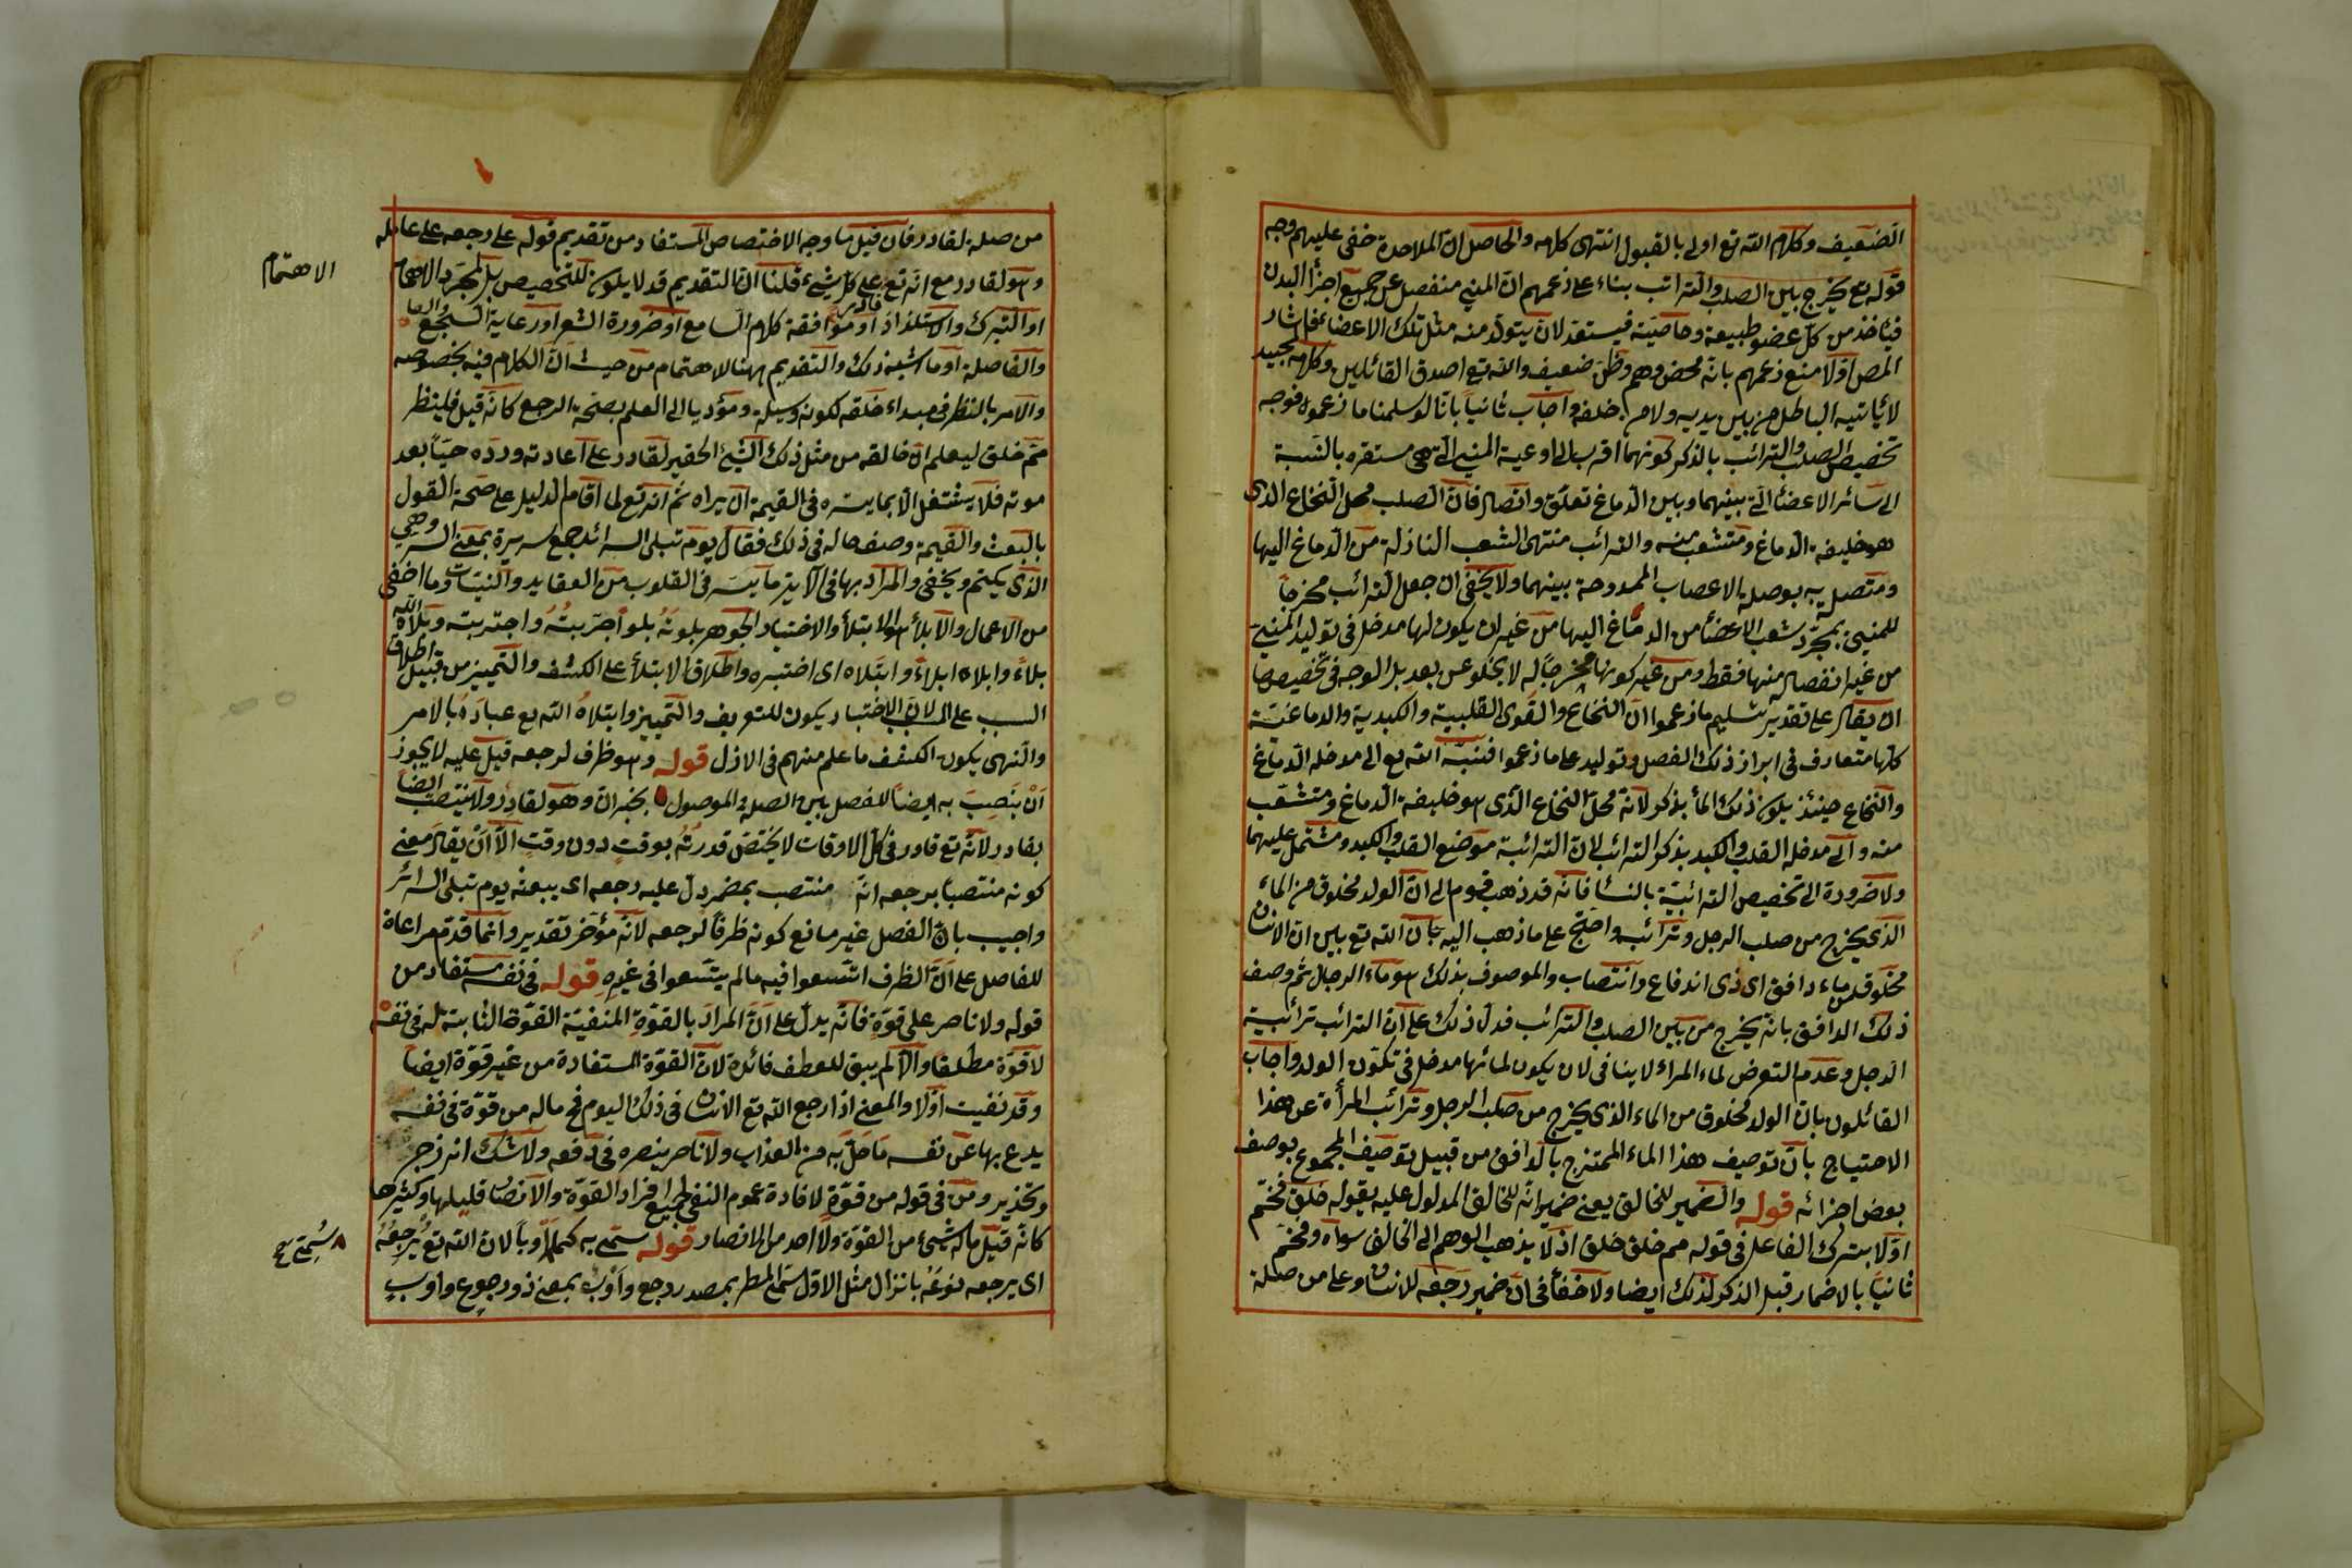 الضعيف وكلام الله تع اولى بالقبول انتهى كلامه والحاصل ان الملاحدة خفى عليهم وجه
قوله تع يخرج من بين الصلب والترائب بناء على زعمهم ان المني منفصل عن جميع اجزأ البدن
فيأخذ من كل عضو طبيعة وخاصيته فيستعد لان يتولد منه مثل تلك الاعضاء فاشار
المص اولا منع زعمهم بانه محض وهم وظن ضعيف والله تع اصدق القائلين وكلامه المجيد
لا يأتيه الباطل من بين يديه ولا من خلفه واجاب ثانيا بانا لو سلمنا ما زعموه فوجه
تخصيص الصلب والترائب بالذكر كونهما اقرب الى اوعية المني التي هي مستقره بالنسبة
الى سائر الاعضا التي بينهما وبين الدماغ تعلق واتصال فان الصلب محل النخاع الذى
هو خليفة الدماغ ومتشعب منه والترائب منتهى الشعب النازلة من الدماغ اليها
ومتصل به بوصلة الاعصاب الممدودة بينهما ولا يخفى ان جعل الترائب مخرجا
للمني بمجرد شعب الاعضا من الدماغ اليها من غير ان يكون لها مدخل فى توليد المني
من غير انفصاله منها فقط ومن غير كونها مخرجا له لا يخلو عن بعد بل الوجه فى تخصيصها
ان يقال على تقدير تسليم ما زعموا ان النخاع والقوى القلبية والكبدية والدماغية
كلها متعارف فى ابراز ذلك الفصل وتوليد على ما زعموا فنبه الله تع الى مدخله الدماغ
والنخاع حينئذ يكون ذلك المأ بذكر لانه محل النخاع الذى هو خليفة الدماغ ومتشعب
منه والى مدخلة القلب والكبد بذكر الترائب لان الترائبة موضع القلب والكبد ومشتمل عليهما
ولا ضرورة الى تخصيص الترائبية بالنسا فانه قد ذهب قوم الى ان الولد مخلوق من الماء
الذى يخرج من صلب الرجل وترائبه واحتج على ما ذهب اليه بان الله تع بين ان الانسان
مخلوق من ماء دافق اى ذى اندفاع وانتصاب والموصوف بذلك هو ماء الرجل ثم وصف
ذلك الدافق بانه يخرج من بين الصلب والترائب فدل ذلك على ان الترائب ترائبية
الرجل وعدم التعرض لماء المراء لا ينافى لان يكون لمائها مدخل فى تكون الولد واجاب
القائلون بان الولد مخلوق من الماء الذى يخرج من صلب الرجل وترائب المرأة عن هذا
الاحتياج بان توصيف هذا الماء الممتزج بالدافق من قبيل توصيف المجموع بوصف
بعض اجزائه قوله والضمير للخالق يعنى ضمير انه للخالق المدلول عليه بقوله خلق فخم
اولا بترك الفاعل فى قوله مم خلق خلق اذ لا يذهب الوهم الى الخالق سواه وفخم
ثانيا بالاضمار قبل الذكر لذلك ايضا ولا خفأ فى ان ضمير رجعه للانسان وعلى من صلة
من صلة لقادر فان قيل ما وجه الاختصاص المستفاد من تقديم قوله على رجعه على عامله
وهو لقادر مع انه تع على كل شيء قلنا ان التقديم قد لا يكون للتخصيص بل لمجرد الاهتمام
او التبرك والاستلذاذ او موافقة كلام السامع او ضرورة الشعر او رعاية السجع
والفاصلة او ما اشبه ذلك والتقديم ههنا للاهتمام من حيث ان الكلام فيه بخصوصه
والامر بالنظر فى مبداء خلقه لكونه وسيلة ومؤديا الى العلم بصحة الرجع كانه قيل فلينظر
مم خلق ليعلم ان خالقه من مثل ذلك الشئ الحقير لقادر على اعادته ورده حيا بعد
موته فلا يشتغل الا بما يسره فى القيمة ان يراه ثم انه تع لما اقام الدليل على صحة القول
بالبعث والقيمة وصف حاله فى ذلك فقال يوم تبلى السرائر جمع سريرة بمعنى السر وهى
الذى يكتم ويخفى والمراد بها فى الآية ما يسر فى القلوب من العقايد والنيات وما اخفى
من الاعمال والابلأ هو الابتلأ والاختبار الجوهر بلوته بلوا جربته واختبرته وبلاه الله
بلاء وابلاه ابلاء وابتلاه اى اختبره واطلاق الابتلأ على الكشف والتمييز من قبيل اطلاق
السبب على لان الاختبار يكون للتعريف والتمييز وابتلاه الله تع عباده بالامر
والنهى يكون الكشف ما علم منهم فى الازل قوله وهو ظرف لرجعه قيل عليه لا يجوز
ان ينصب به ايضا للفصل بين الصلة والموصول بخبر ان وهو لقادر ولا ينتصب ايضا
بقادر لانه تع قادر فى كل الاوقات لا يختص قدرته بوقت دون وقت الا ان يقال معنى
كونه منتصبا برجعه انه منتصب بمضمر دل عليه رجعه اى يبعثه يوم تبلى السرائر
واجيب بان الفصل غير مانع كونه ظرفا لرجعه لانه مؤخر تقدير وانما قدم مراعاة
للفاصل على ان الظرف اتسعوا فيه ما لم يتسعوا فى غيره قوله فى نفسه مستفاد من
قوله ولا ناصر على قوة فانه يدل على ان المراد بالقوة المنفية القوة الثابتة له فى نفسه
لا قوة مطلقا والا لم يبق للعطف فائدة لان القوة المستفادة من غير قوة ايضا
وقد نفيت اولا والمعنى اذا رجع الله تع الانسان فى ذلك اليوم فما له من قوة فى نفسه
يدفع بها عن نفسه ما حل به من العذاب ولا ناصر ينصره فى دفعه ولا شك انه زجر
وتحذير ومن فى قوله من قوة لافادة عموم النفى لجميع افراد القوة والانصار قليلها وكثيرها
كانه قيل ما له شئ من القوة ولا احد من الانصار قوله سمى به كما اوبا لان الله تع يرجعه
اى يرجعه نوعه بانزال مثل الاول سمى المطر بمصدر رجع واوب بمعنى ذو رجوع واوب
الاهتمام